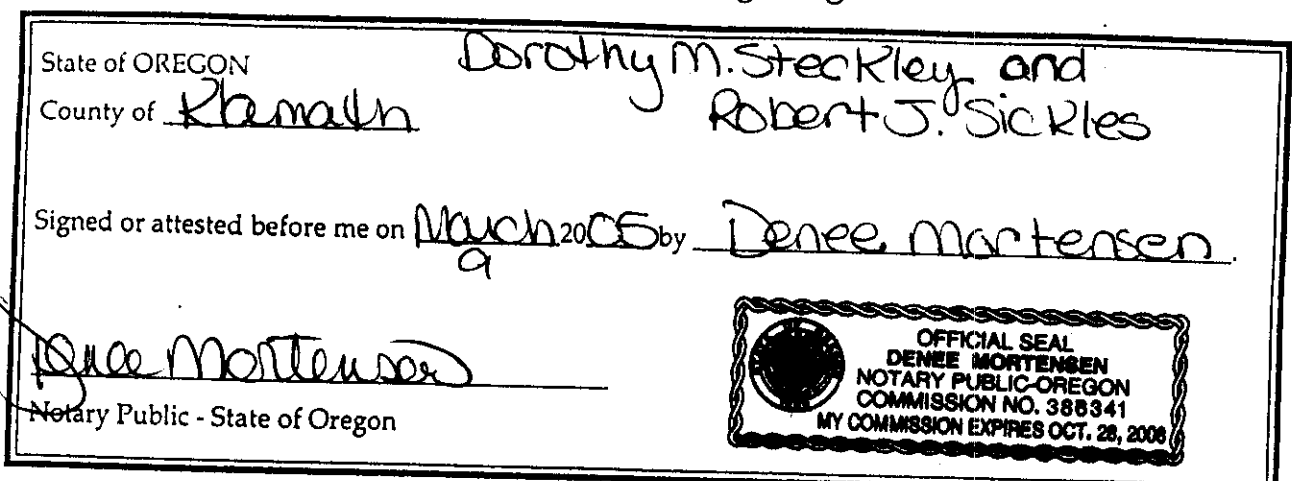 State of OREGON
Dorothy M. Steckley and
County of Klamath
Robert J. Sickles
Signed or attested before me on March 2005 by Denee Mortensen.
9
Denee Mortensen
Notary Public - State of Oregon
OFFICIAL SEAL
DENEE MORTENSEN
NOTARY PUBLIC-OREGON
COMMISSION NO. 386341
MY COMMISSION EXPIRES OCT. 28, 2008